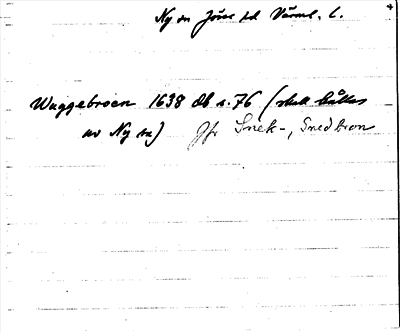 Ny sn Jösse hd Värml. l.
Waggebroen 1638 db s. 76 (skall hållas
av Ny sn) Jfr Snek-, Snedbron